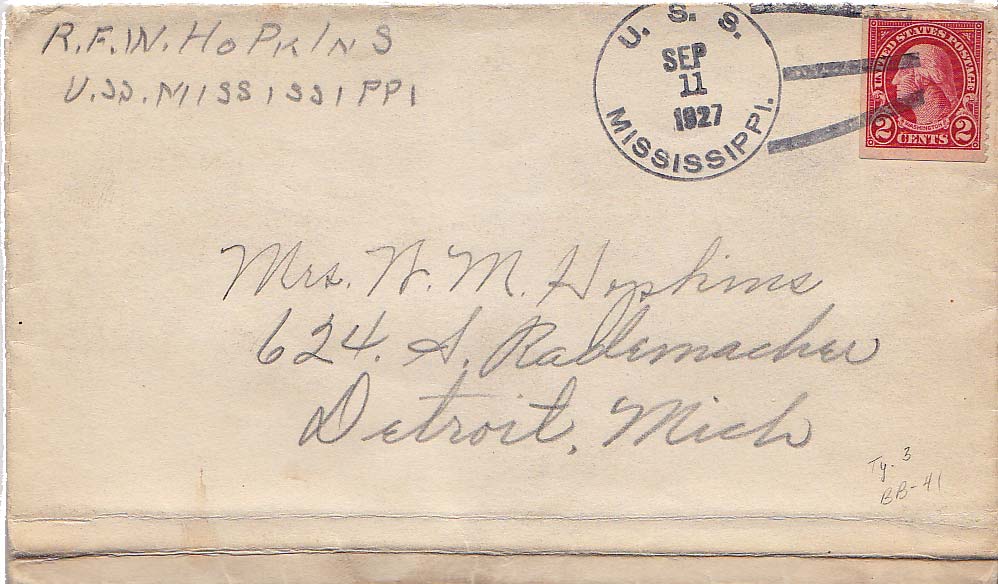 R.F.W. HOPKINS
U.SS. MISSISSIPPI
U. S. S.
SEP
11
1927
MISSISSIPPI.
UNITED STATES POSTAGE
WASHINGTON
2 CENTS 2
Mrs. W. M. Hopkins
624. S. Rademacher
Detroit, Mich
Ty. 3
BB-41